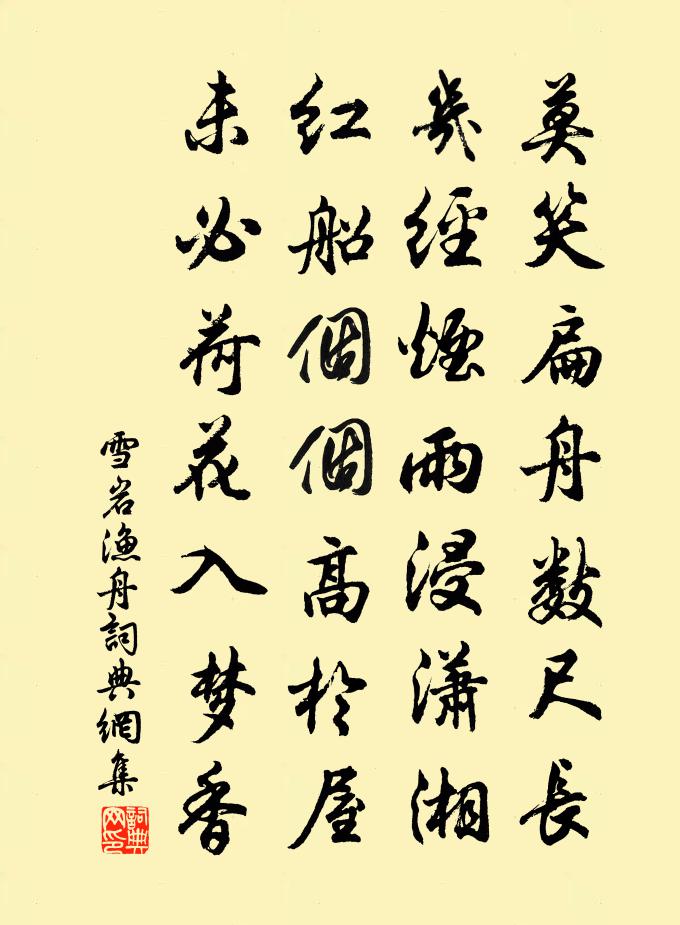 莫笑扁舟數尺長
幾經煙雨浸瀟湘
紅船個個高於屋
未必荷花入夢香
雪岩漁舟詞典網集
詞典網印